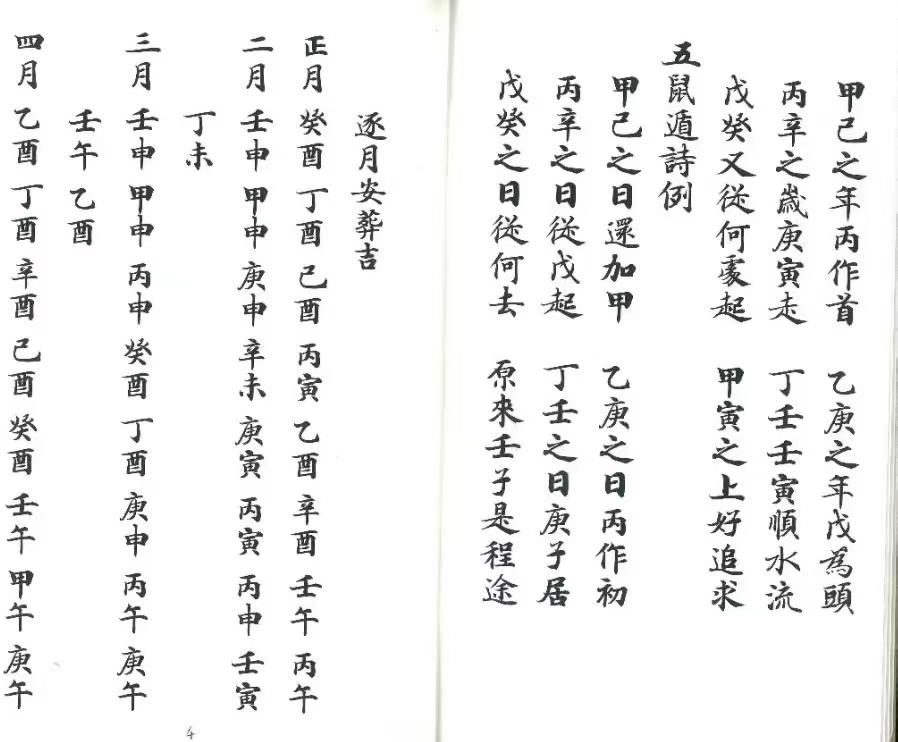 甲己之年丙作首　乙庚之年戊為頭
丙辛之歲庚寅走　丁壬壬寅順水流
戊癸又從何處起　甲寅之上好追求
五鼠遁詩例
甲己之日還加甲　乙庚之日丙作初
丙辛之日從戊起　丁壬之日庚子居
戊癸之日從何去　原來壬子是程途
逐月安葬吉
正月　癸酉　丁酉　己酉　丙寅　乙酉　辛酉　壬午　丙午
二月　壬申　甲申　庚申　辛未　庚寅　丙寅　丙申　壬寅
丁未
三月　壬申　甲申　丙申　癸酉　丁酉　庚申　丙午　庚午
壬午　乙酉
四月　乙酉　丁酉　辛酉　己酉　癸酉　壬午　甲午　庚午
4